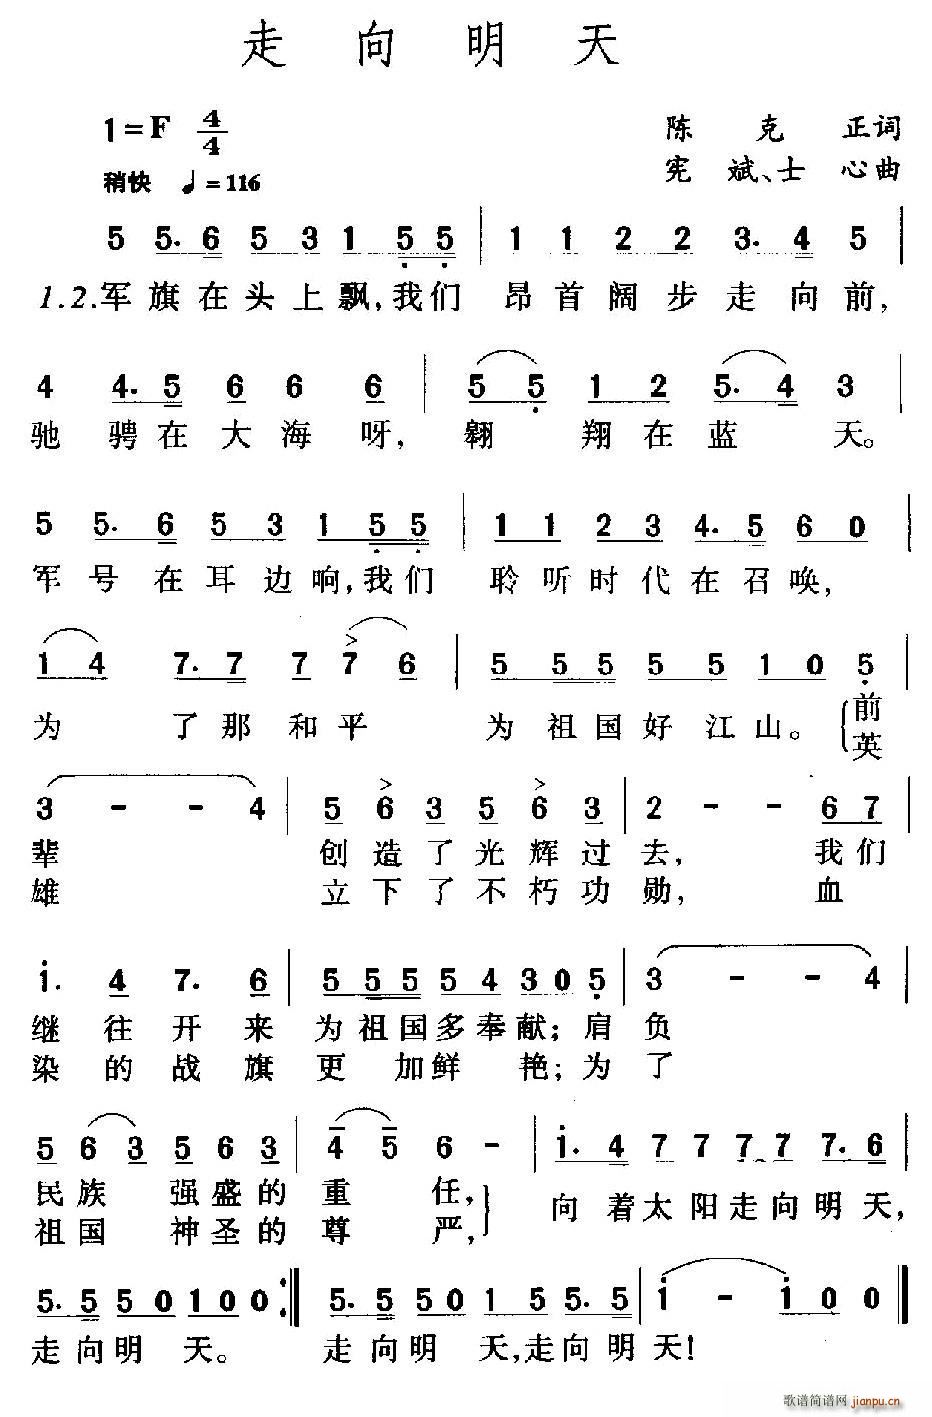 走向明天
1=F 4/4
陈克正词
稍快 ♩=116
宪斌、士心曲
5 5. 6 5 3 1 5 5 | 1 1 2 2 3. 4 5 |
1.2.军旗在头上飘,我们昂首阔步走向前,
4 4. 5 6 6 6 | 5 5 1 2 5. 4 3 |
驰骋在大海呀,翱翔在蓝天。
5 5. 6 5 3 1 5 5 | 1 1 2 3 4. 5 6 0 |
军号在耳边响,我们聆听时代在召唤,
1 4 7. 7 7 7 6 | 5 5 5 5 5 5 1 0 5 |
为了那和平为祖国好江山。{前
英
3 - - 4 | 5 6 3 5 6 3 | 2 - - 6 7 |
辈创造了光辉过去,我们
雄立下了不朽功勋,血
1. 4 7. 6 | 5 5 5 5 5 4 3 0 5 | 3 - - 4 |
继往开来为祖国多奉献;肩负
染的战旗更加鲜艳;为了
5 6 3 5 6 3 | 4 5 6 - | 1. 4 7 7 7 7 7. 6 |
民族强盛的重任,
祖国神圣的尊严,} 向着太阳走向明天,
5. 5 5 0 1 0 0 :‖ 5. 5 5 0 1 5 5 5. 5 | 1 - 1 0 0 ‖
走向明天。走向明天,走向明天!
歌谱简谱网 jianpu.cn